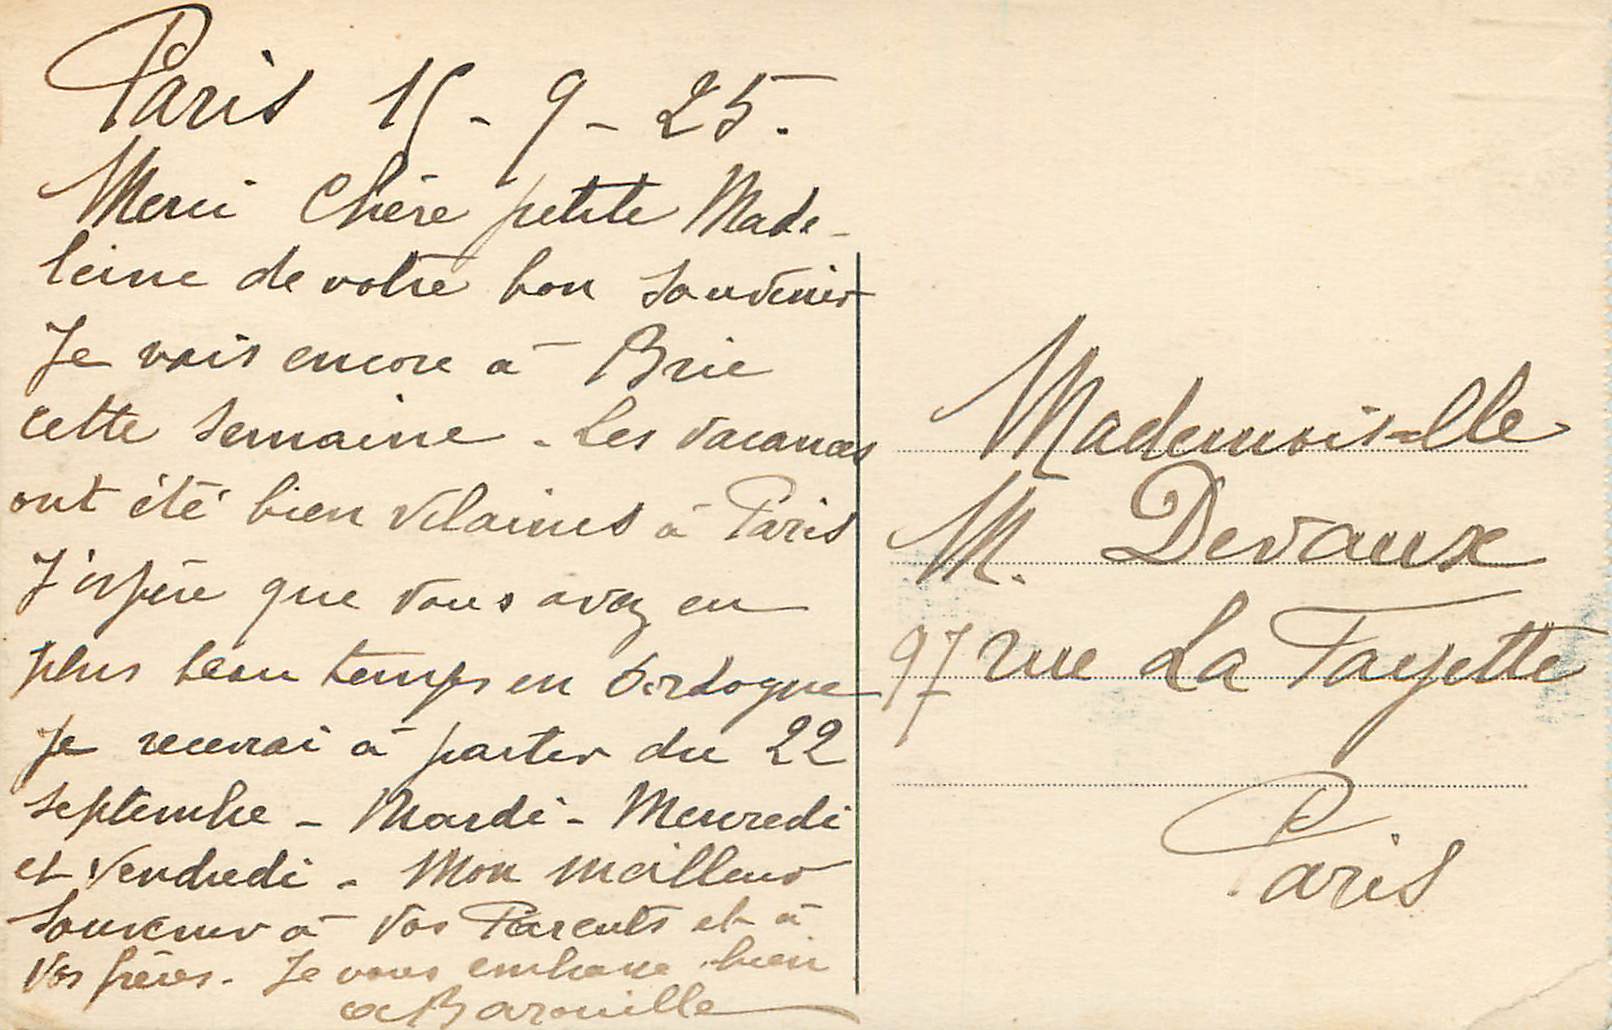 Paris 15-9-25.
Merci Chère petite Made-
leine de votre bon souvenir
Je vais encore à Brie
cette semaine - Les vacances
ont été bien vilaines à Paris
J'espère que vous avez eu
plus beau temps en Dordogne
Je recevrai à partir du 22
septembre - Mardi - Mercredi
et Vendredi - Mon meilleur
souvenir à vos Parents et à
vos frères. Je vous embrasse bien
Barouille
Mademoiselle
M. Devaux
97 rue La Fayette
Paris